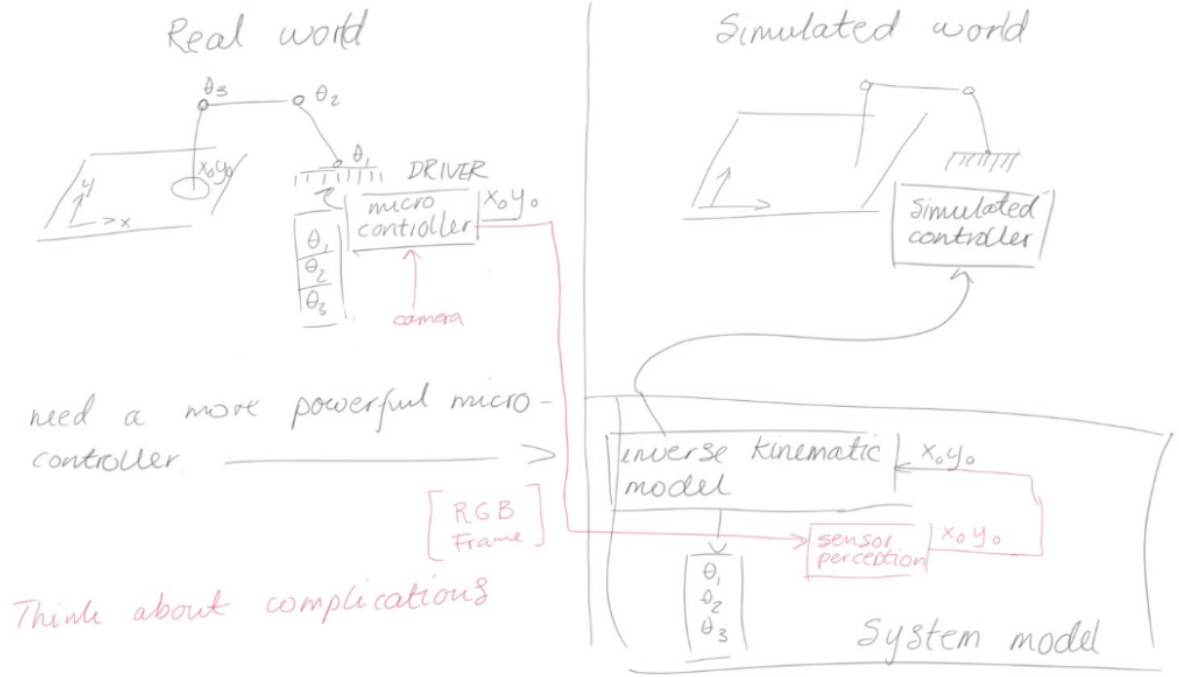 Real world
θ3
θ2
θ1
x₀y₀
y
x
DRIVER
micro
controller
x₀y₀
θ1
θ2
θ3
camera
need a more powerful micro-
controller
[RGB
Frame]
Think about complications
Simulated world
simulated
controller
inverse kinematic
model
x₀y₀
sensor
perception
x₀y₀
θ1
θ2
θ3
System model